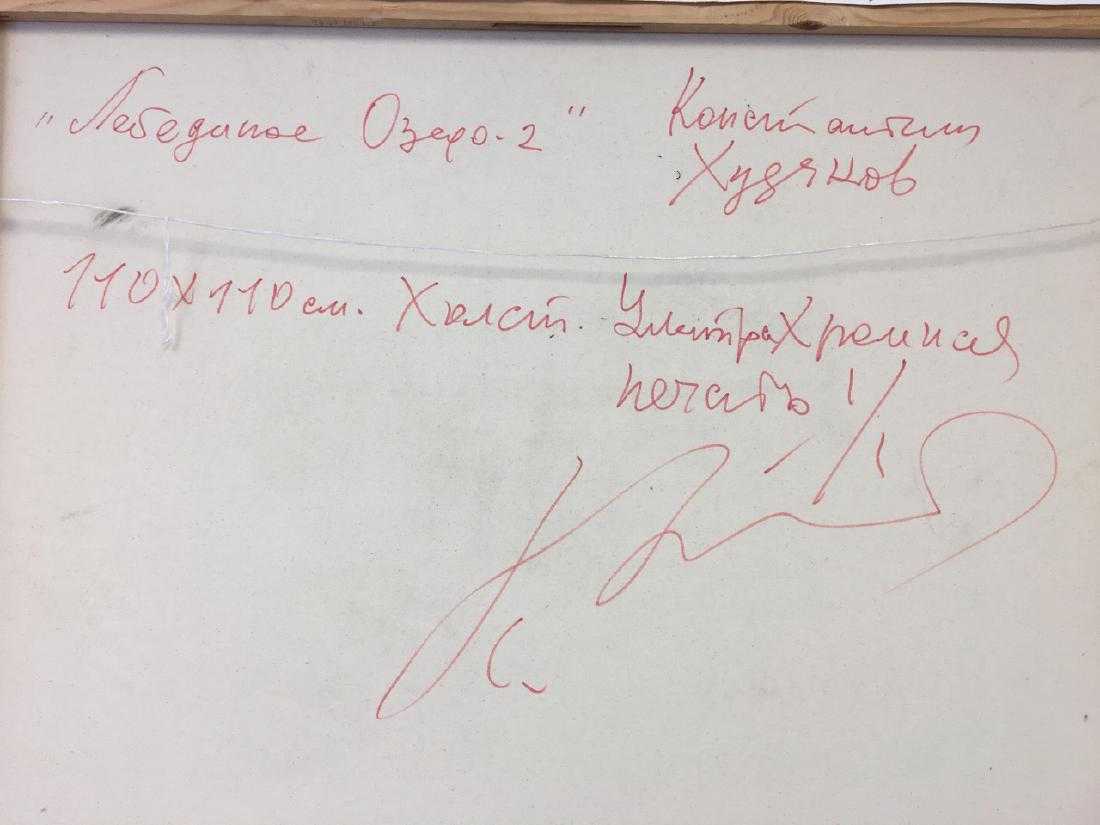 "Лебединое Озеро-2" Константин
Худяков
110х110см. Холст. УльтраХромная
печать 1/1